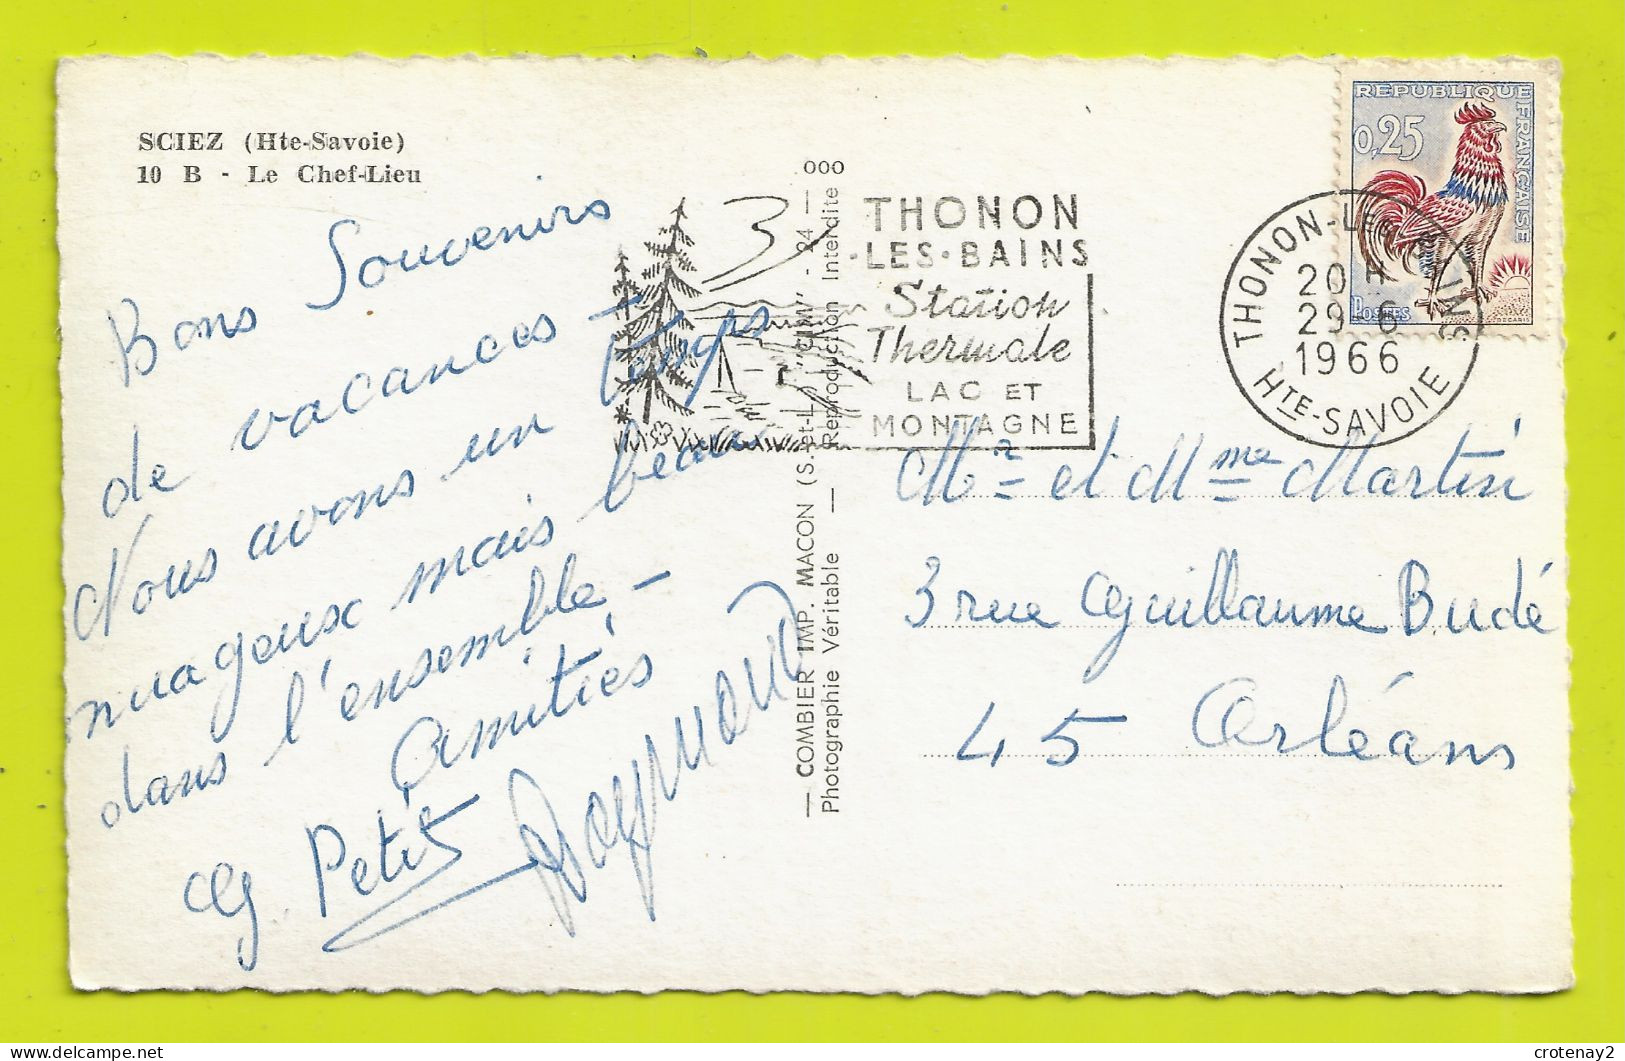 SCIEZ (Hte-Savoie)
10 B - Le Chef-Lieu
Bons Souvenirs
de vacances -
Nous avons un temps
nuageux mais beau
dans l'ensemble -
Amitiés
G. Petit
Raymond
000
— COMBIER IMP. MACON (S.-et-L.) "CIM" - 24 —
Photographie Véritable — Reproduction Interdite
THONON
-LES-BAINS
Station
Thermale
LAC ET
MONTAGNE
THONON-LES-BAINS
20 H
29-6
1966
HTE-SAVOIE
REPUBLIQUE FRANÇAISE
0,25
POSTES
DECARIS
Mr et Mme Martin
3 rue Guillaume Budé
45 Orléans
crotenay2